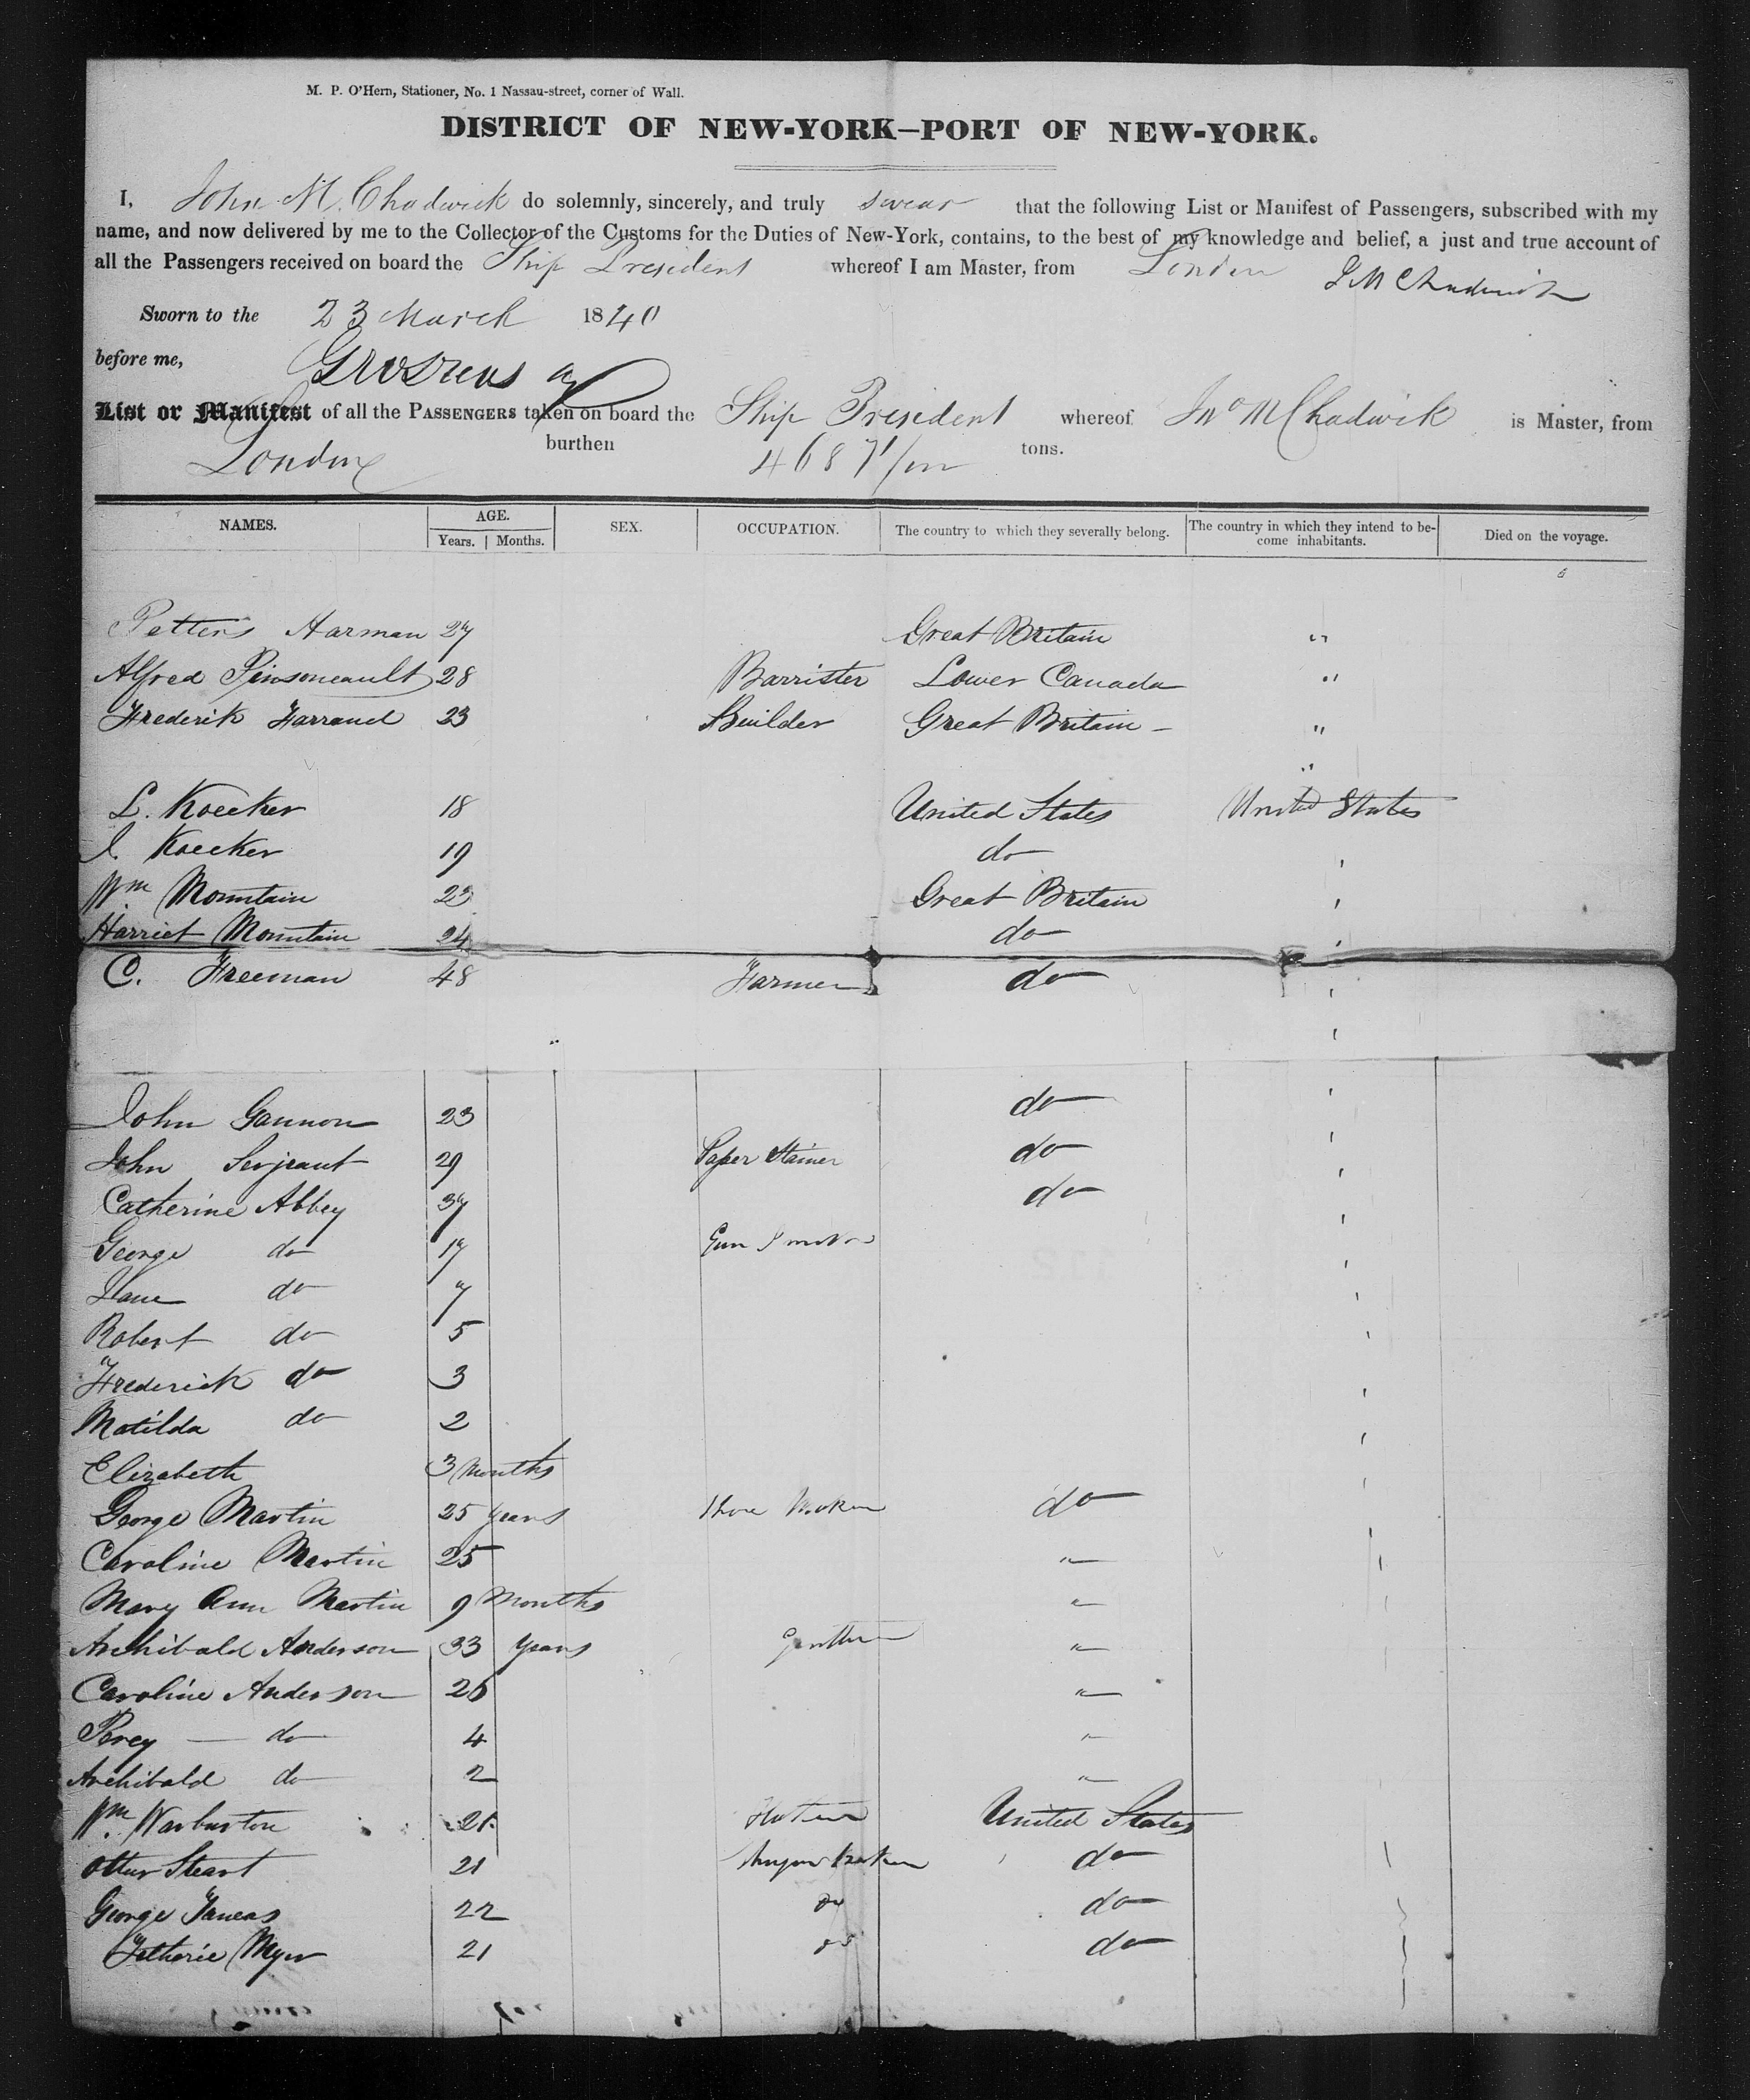 M. P. O'Hern, Stationer, No. 1 Nassau-street, corner of Wall.
DISTRICT OF NEW-YORK—PORT OF NEW-YORK.
I, John M. Chadwick do solemnly, sincerely, and truly swear that the following List or Manifest of Passengers, subscribed with my
name, and now delivered by me to the Collector of the Customs for the Duties of New-York, contains, to the best of my knowledge and belief, a just and true account of
all the Passengers received on board the Ship President whereof I am Master, from London J M Chadwick
Sworn to the 23 March 1840
before me,
List or Manifest of all the PASSENGERS taken on board the Ship President whereof Jno M Chadwick is Master, from
London burthen 468 71/ tons.
NAMES. AGE. SEX. OCCUPATION. The country to which they severally belong. The country in which they intend to be-come inhabitants. Died on the voyage.
Years. Months.
Harman 27 Great Britain "
Alfred Pinsoneault 28 Barrister Lower Canada "
Frederik Farrand 23 Builder Great Britain - "
"
L. Koecker 18 United States United States
I. Koecker 19 do
Wm Mountain 23 Great Britain
Harriet Mountain 24 do
C. Freeman 48 Farmer do
John Gannon 23 do
John Serjeant 29 Paper Stainer do
Catherine Abbey 37 do
George do 17 Gun Smith
Jane do 7
Robert do 5
Frederick do 3
Matilda do 2
Elizabeth 3 Months
George Martin 25 years do
Caroline Martin 25 "
Mary Ann Martin 9 Months "
Archibald Anderson 33 years "
Caroline Anderson 26 "
Percy — do 4 "
Archibald do 2 "
Wm. Warburton 21 United States
21 do
George 22 do do
21 do do